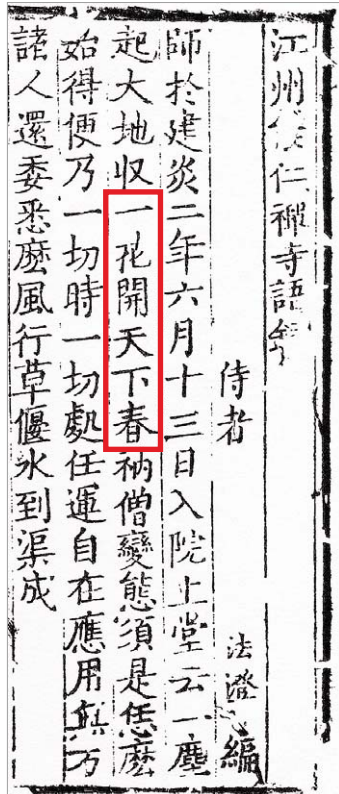 江州能仁禪寺語錄
侍者 法澄 編
師於建炎二年六月十三日入院上堂云一塵
起大地收一花開天下春衲僧變態須是恁麽
始得便乃一切時一切處任運自在應用無方
諸人還委悉麽風行草偃水到渠成